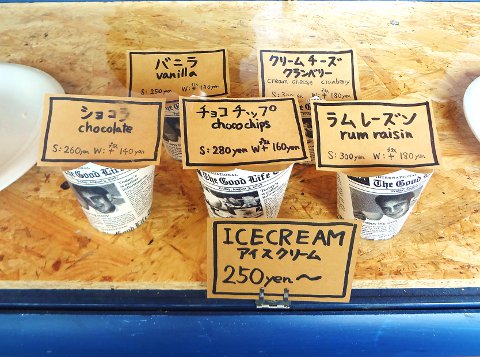 バニラ
vanilla
S:250yen W:+130yen
クリームチーズ
クランベリー
cream cheese cranberry
ショコラ
chocolate
S:260yen W:+140yen
チョコチップ
chocochips
S:280yen W:+160yen
ラムレーズン
rum raisin
S:300yen W:+180yen
The Good Life
The Good Life
The Good Life
ICECREAM
アイスクリーム
250yen～